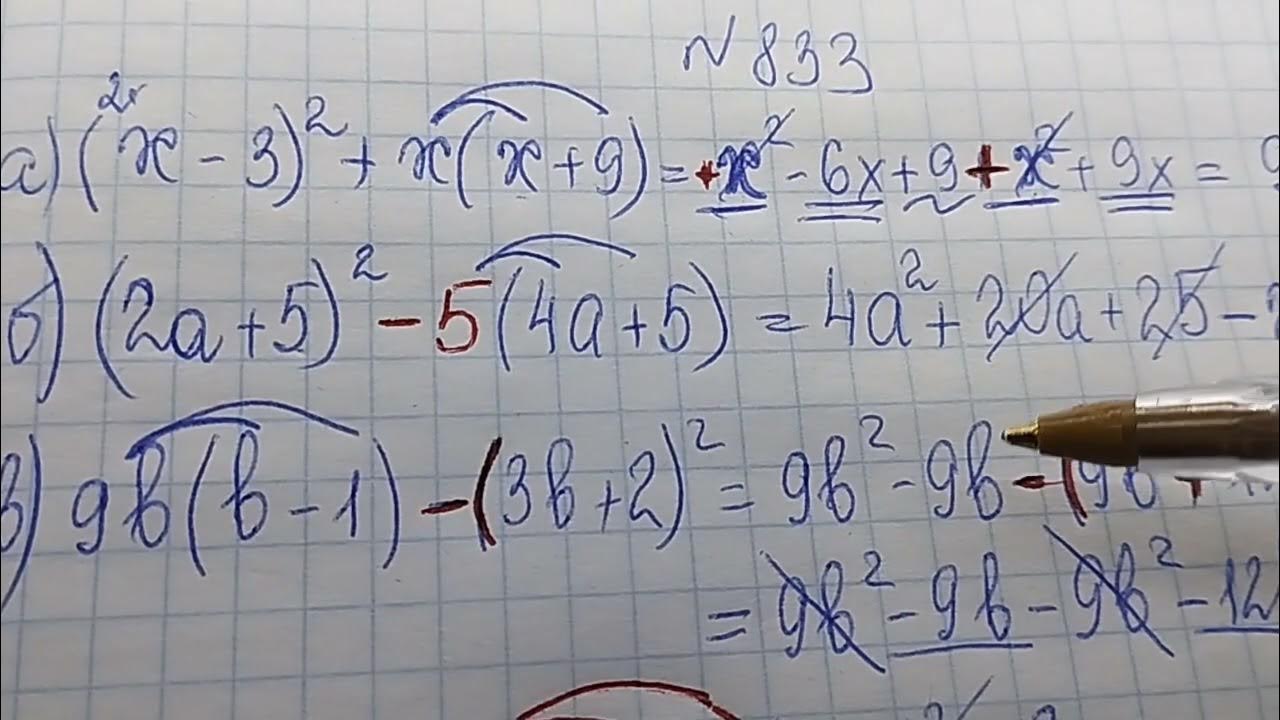 N 833
2x
а) (x - 3)² + x(x + 9) = + x² - 6x + 9 + x² + 9x = 9
б) (2a + 5)² - 5(4a + 5) = 4a² + 20a + 25 -
в) 9b(b - 1) - (3b + 2)² = 9b² - 9b - (9b +
= 9b² - 9b - 9b² - 12